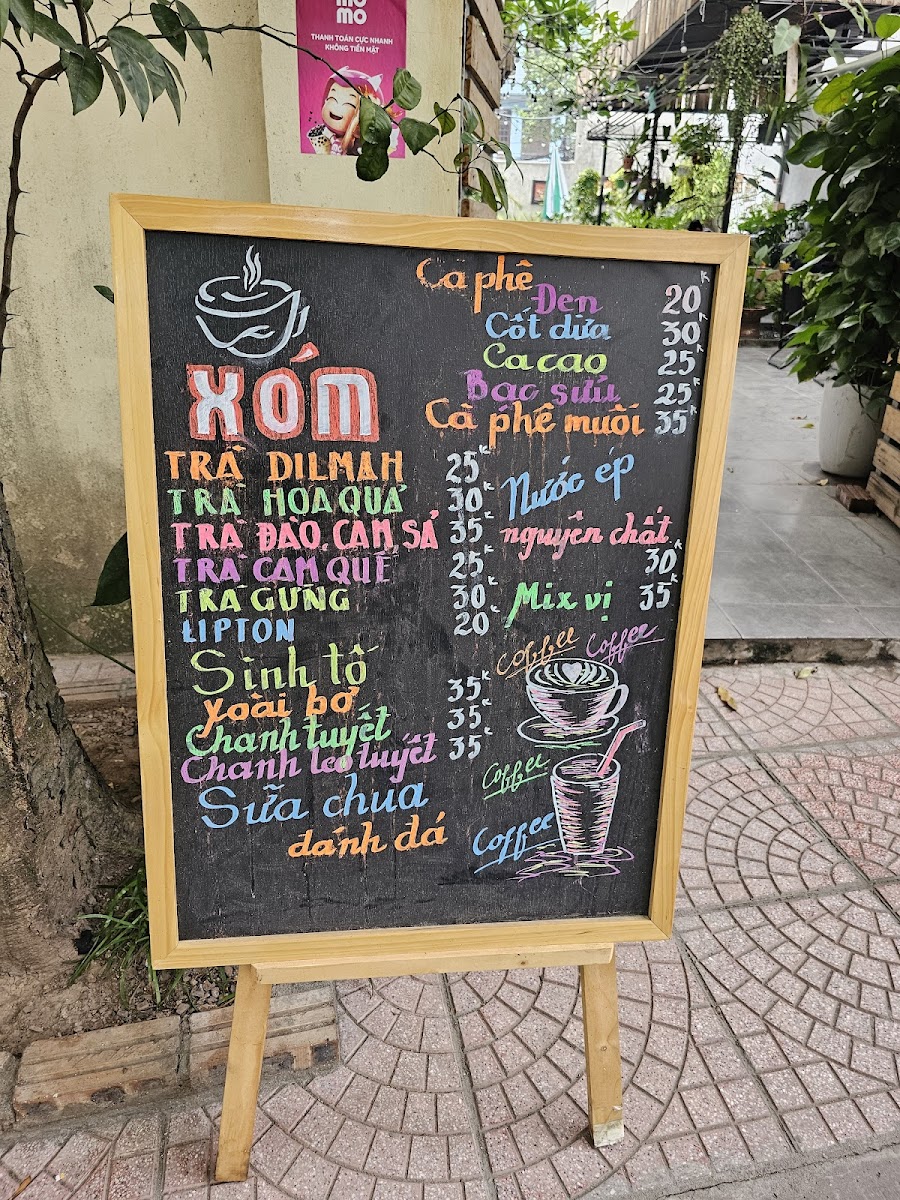 MOMO
THANH TOÁN CỰC NHANH
KHÔNG TIỀN MẶT
XÓM
TRÀ DILMAH 25K
TRÀ HOA QUẢ 30K
TRÀ ĐÀO, CAM, SẢ 35K
TRÀ CAM QUẾ 25K
TRÀ GỪNG 30K
LIPTON 20K
Sinh tố
Xoài bơ 35K
Chanh tuyết 35K
Chanh leo tuyết 35K
Sữa chua
đánh đá
Cà phê
Đen 20K
Cốt dừa 30K
Ca cao 25K
Bạc sửu 25K
Cà phê muối 35K
Nước ép
nguyên chất
30K
Mix vị 35K
Coffee Coffee
Coffee
Coffee